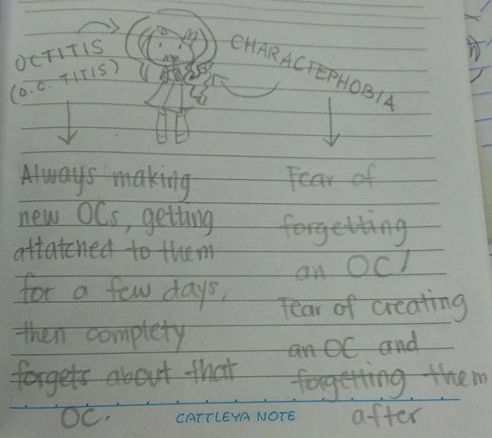 OCTITIS
(O.C. TITIS)
CHARACTEPHOBIA
Always making
new OCs, getting
attatched to them
for a few days,
then complety
forgets about that
OC.
Fear of
forgetting
an OC/
Fear of creating
an OC and
forgetting them
after
CATTLEYA NOTE